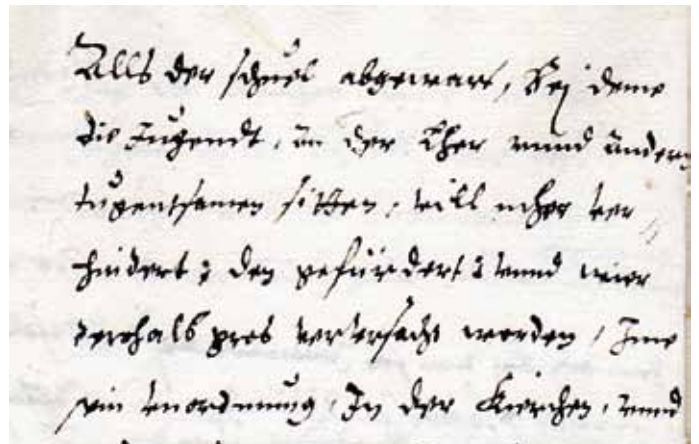 Alls der schuel abgewart, bej deme
die Jugendt, an der Lher vnnd andern
tugentsamen sitten, vill mher ver
hindert, den gefürdert, vnnd wier
derhalb verursacht worden, Jme
ein vnordnung, Jn der Kirchen, vnnd